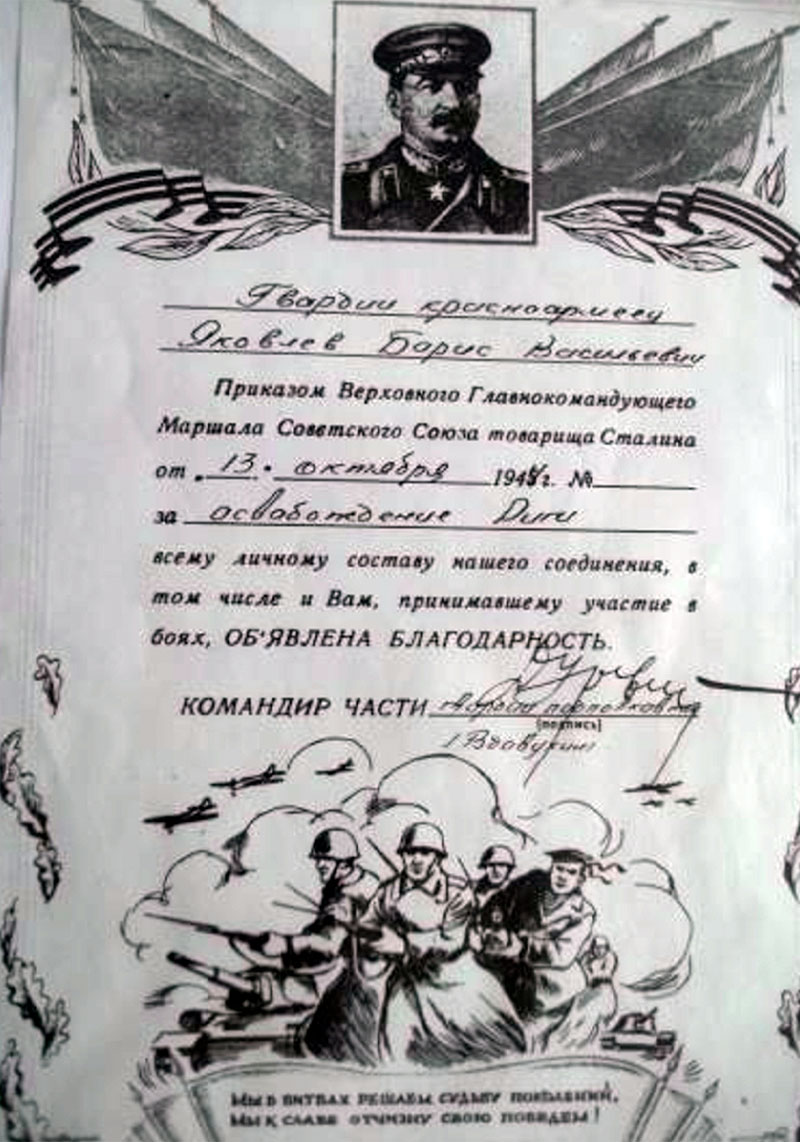 Гвардии красноармеец
Яковлев Борис Васильевич
Приказом Верховного Главнокомандующего
Маршала Советского Союза товарища Сталина
от „13. октября 1944г. №
за освабождение Риги
всему личному составу нашего соединения, в
том числе и Вам, принимавшему участие в
боях, ОБ'ЯВЛЕНА БЛАГОДАРНОСТЬ.
КОМАНДИР ЧАСТИ гвардии подполковник
(подпись)
/Вдовухин
МЫ В БИТВАХ РЕШАЕМ СУДЬБУ ПОКОЛЕНИЙ,
МЫ К СЛАВЕ ОТЧИЗНУ СВОЮ ПОВЕДЕМ!